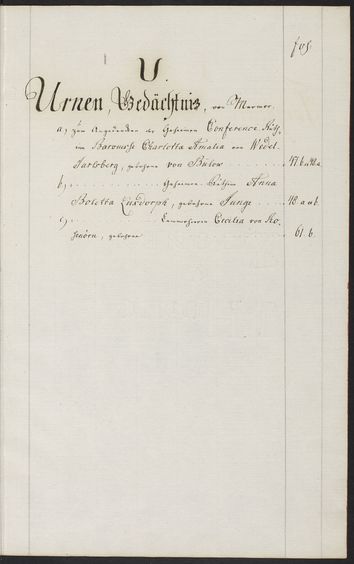 fol
U.
Urnen, Gedächtnis, von Marmor.
a) zum Angedenken der Geheimen Conference Räth,
in Baronesse Charlotta Amalia von Wedel
Jarlsberg, gebohrne von Bülow . . . . . . 47 b. 48 a.
b) . . . . . . . . Geheimen Räthin Anna
Boletta Luxdorph, gebohrne Junge . . . . 48. a. u b.
c) . . . . . . . . Cammerherrin Cecilia von Ro-
senörn, gebohrne . . . . . . 61. b.